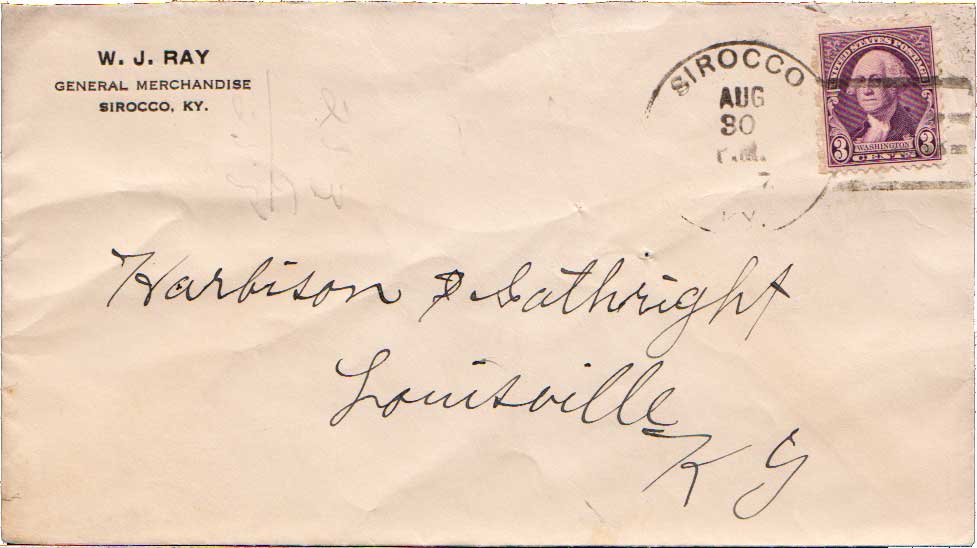 W. J. RAY
GENERAL MERCHANDISE
SIROCCO, KY.
SIROCCO
AUG
30
P.M.
KY.
UNITED STATES POSTAGE
3 WASHINGTON 3
CENTS
Harbison & Gathright
Louisville
Ky